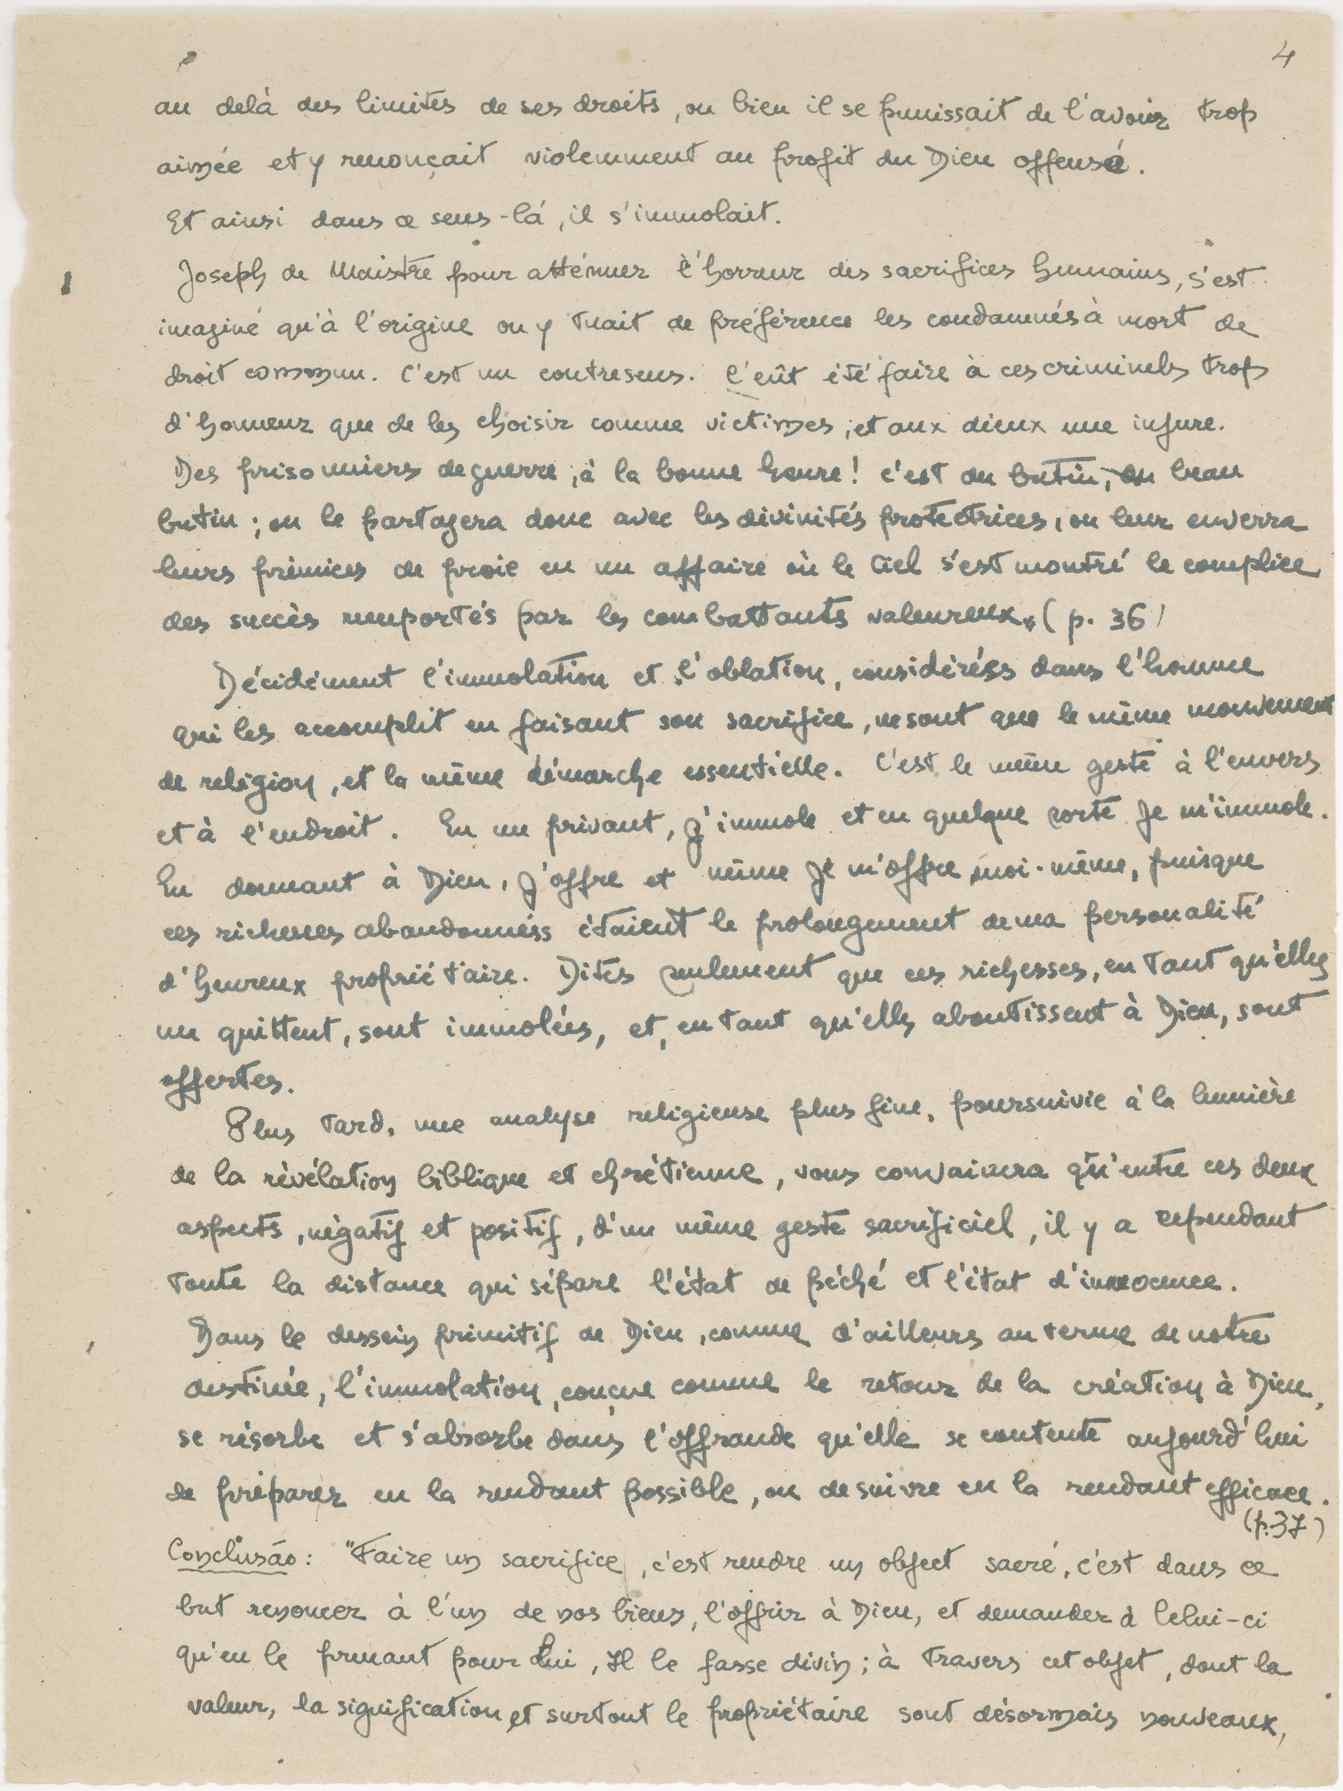 4
au delà des limites de ses droits, ou bien il se punissait de l'avoir trop
aimée et y renonçait violemment au profit du Dieu offensé.
Et ainsi dans ce sens-là, il s'immolait.
Joseph de Maistre pour atténuer l'horreur des sacrifices humains, s'est
imaginé qu'à l'origine on y tuait de préférence les condamnés à mort de
droit commun. C'est un contresens. C'eût été faire à ces criminels trop
d'honneur que de les choisir comme victimes, et aux dieux une injure.
Des prisonniers de guerre, à la bonne heure! c'est du butin, du beau
butin; on le partagera donc avec les divinités protectrices, on leur enverra
leurs prémices de proie en un affaire où le Ciel s'est montré le complice
des succès remportés par les combattants valeureux. (p. 36)
Décidément l'immolation et l'oblation, considérées dans l'homme
qui les accomplit en faisant son sacrifice, ne sont que le même mouvement
de religion, et la même démarche essentielle. C'est le même geste à l'envers
et à l'endroit. En me privant, j'immole et en quelque sorte je m'immole.
En donnant à Dieu, j'offre et même je m'offre moi-même, puisque
ces richesses abandonnées étaient le prolongement de ma personalité
d'heureux propriétaire. Dites seulement que ces richesses, en tant qu'elles
me quittent, sont immolées, et, en tant qu'elles aboutissent à Dieu, sont
offertes.
Plus tard, une analyse religieuse plus fine, poursuivie à la lumière
de la révélation biblique et chrétienne, vous convaincra qu'entre ces deux
aspects, négatif et positif, d'un même geste sacrificiel, il y a cependant
toute la distance qui sépare l'état de péché et l'état d'innocence.
Dans le dessein primitif de Dieu, comme d'ailleurs au terme de notre
destinée, l'immolation, conçue comme le retour de la création à Dieu,
se résorbe et s'absorbe dans l'offrande qu'elle se contente aujourd'hui
de préparer en la rendant possible, ou de suivre en la rendant efficace.
(p.37)
Conclusão: "Faire un sacrifice, c'est rendre un object sacré, c'est dans ce
but renoncer à l'un de nos biens, l'offrir à Dieu, et demander à Celui-ci
qu'en le prenant pour Lui, Il le fasse divin; à travers cet objet, dont la
valeur, la signification et surtout le propriétaire sont désormais nouveaux,